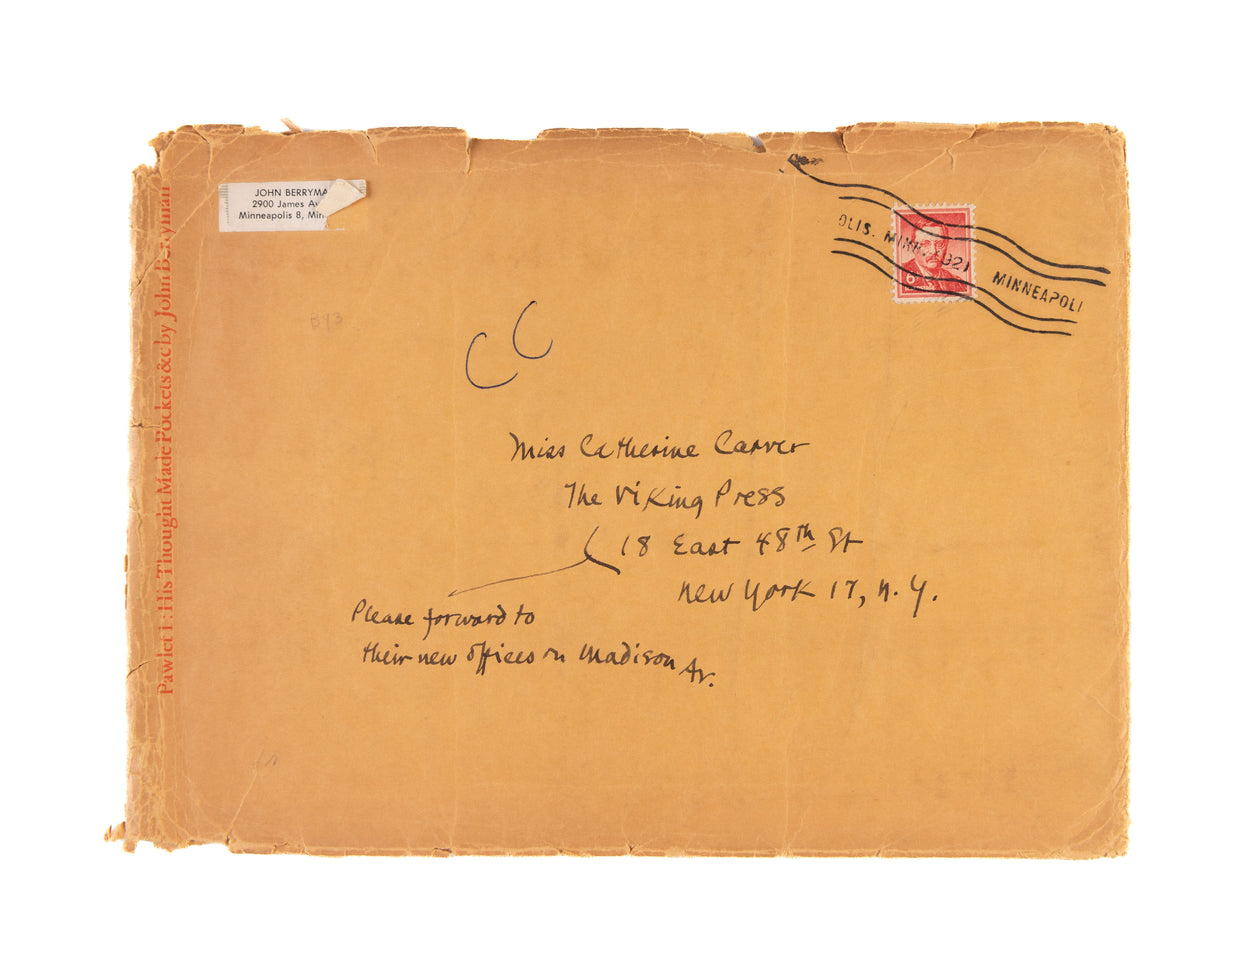 JOHN BERRYMA
2900 James Av
Minneapolis 8, Min
OLIS. MINN.
MINNEAPOLI
6¢
B43
CC
Miss Catherine Carver
The Viking Press
18 East 48th St
New York 17, N.Y.
Please forward to
their new offices on Madison Av.
Pawlet 1 : His Thought Made Pockets &c by John Berryman